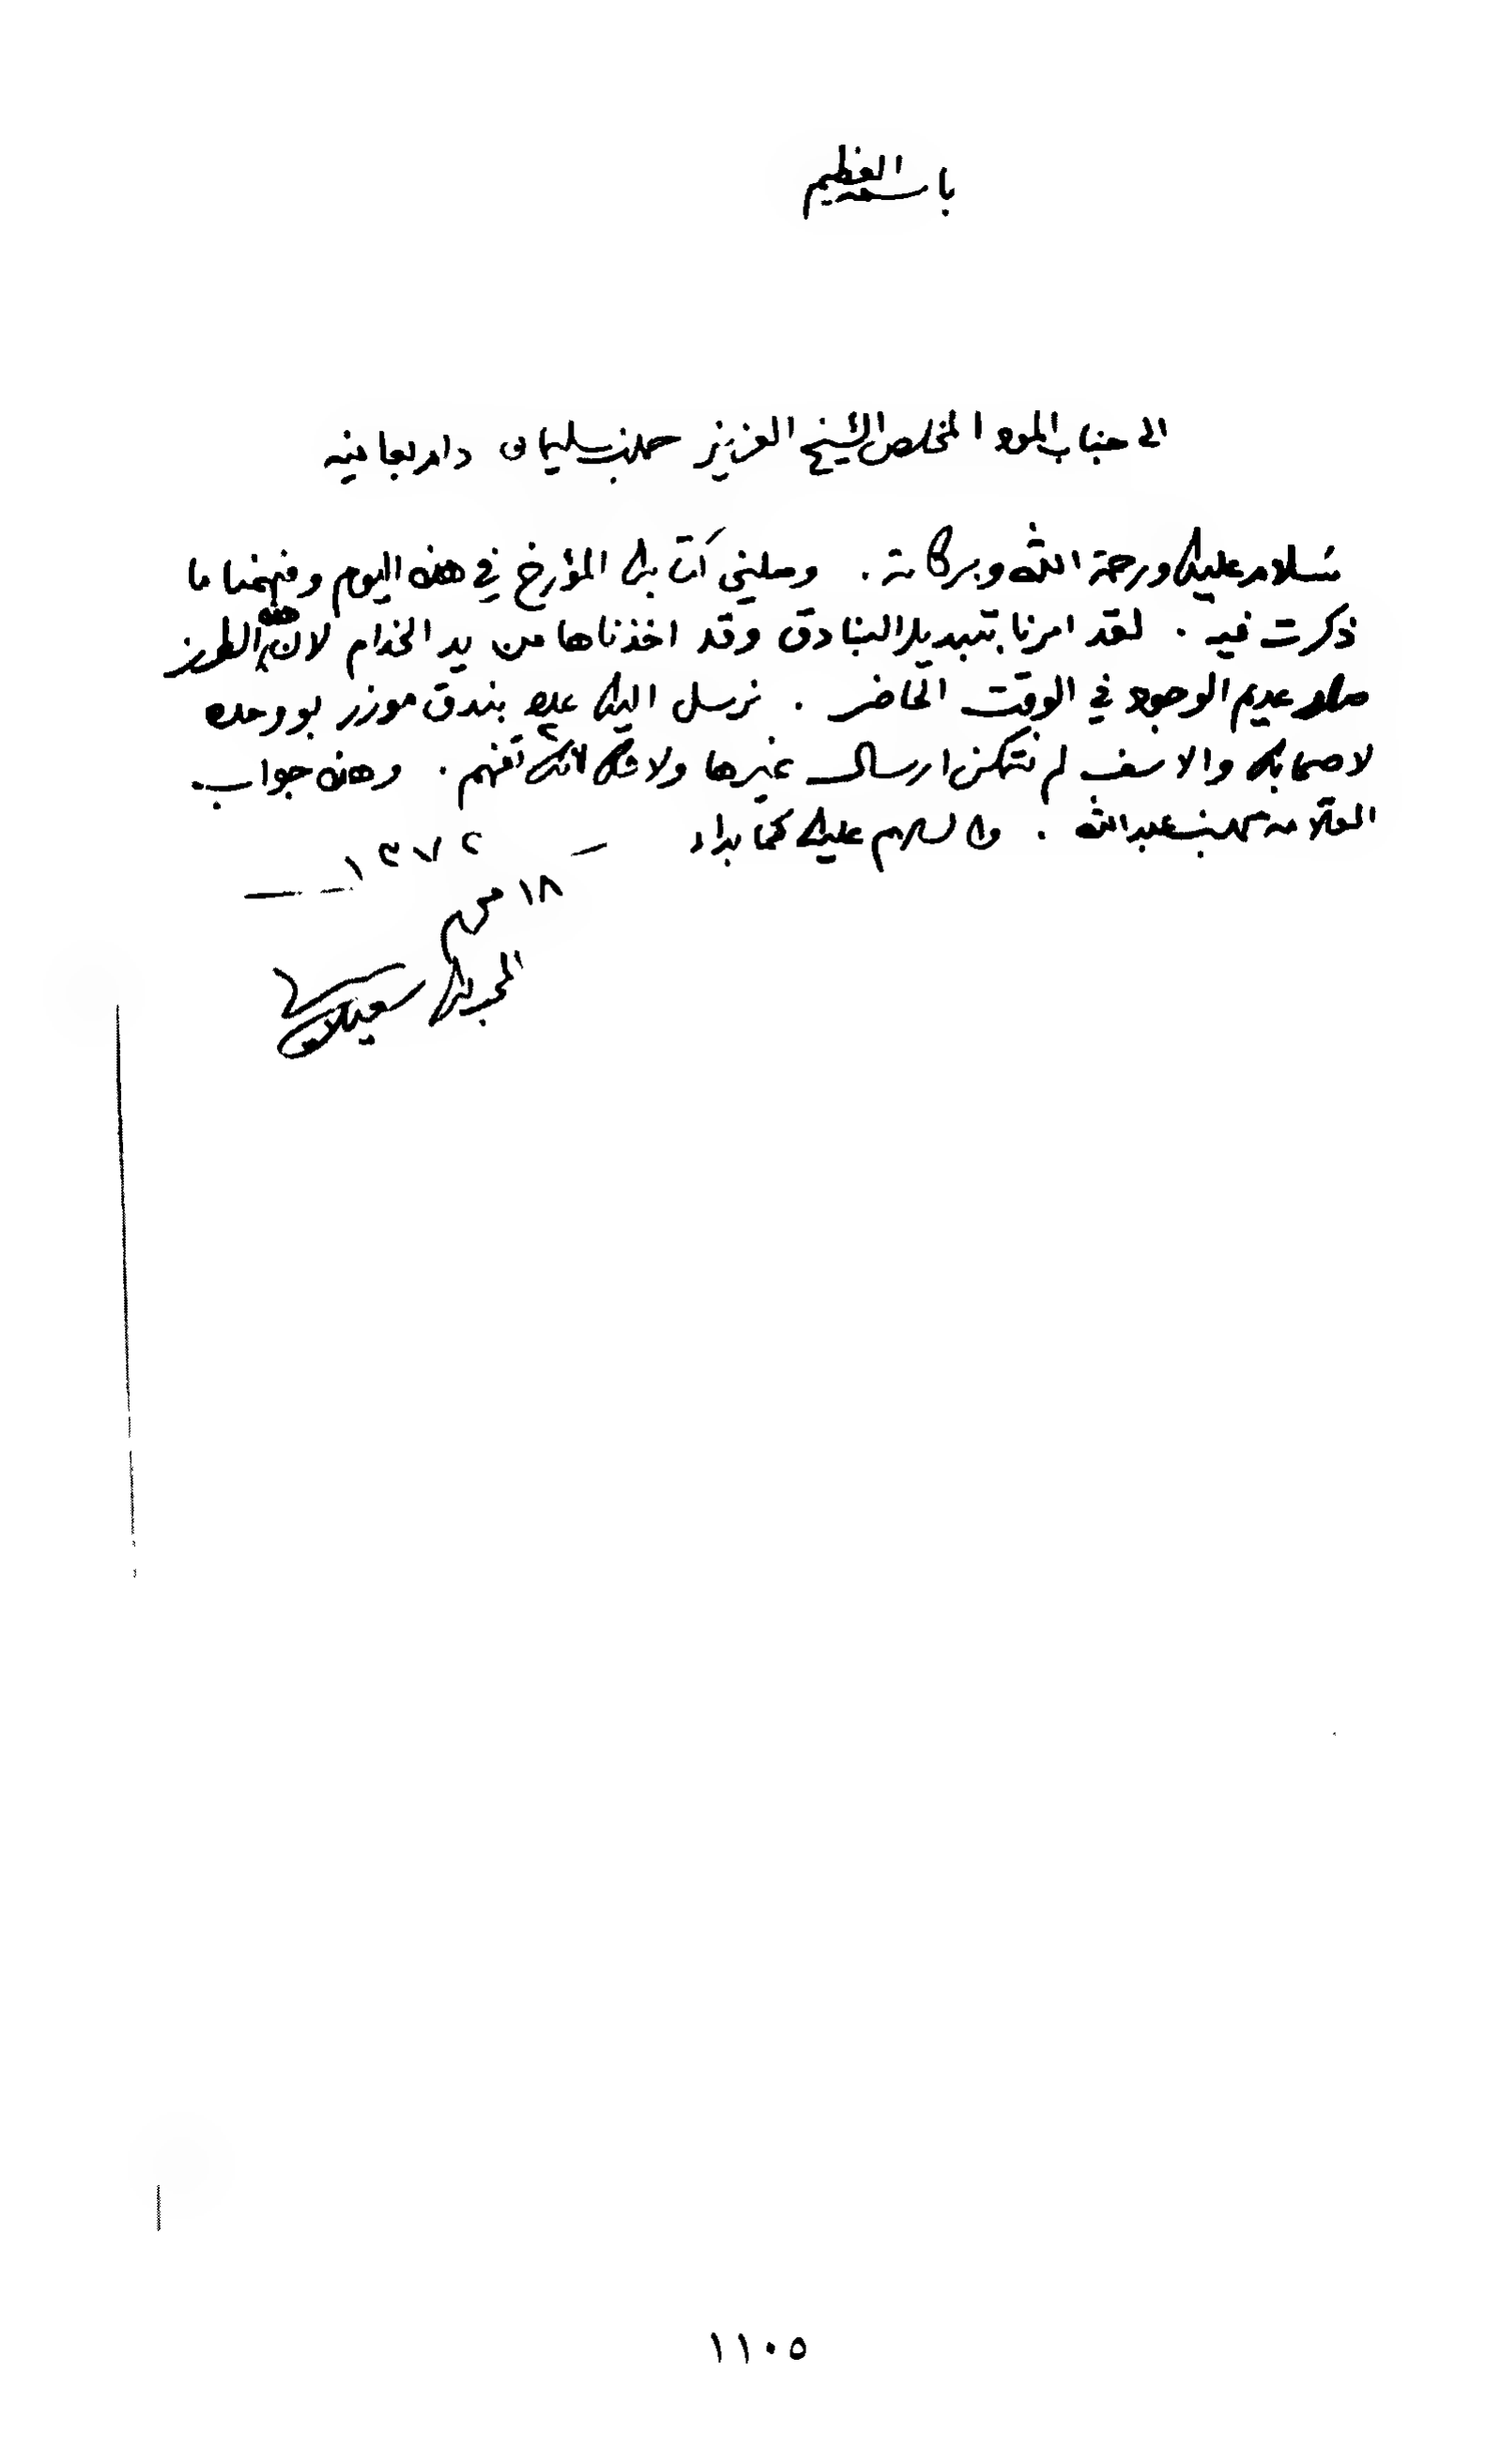 باسمه العظيم
الى جناب المود المخلص الشيخ العزيز حمد بن سليمان دام بعافيه
سلام عليك ورحمة الله وبركاته . وصلني كتابك المؤرخ في هذه اليوم وفهمنا ما
ذكرت فيه . لقد امرنا بتبديل البنادق وقد اخذناها من يد الخدام لان هذه الطرز
صار عديم الوجود في الوقت الحاضر . نرسل اليك عدد ٢ بندق موزر بو وحده
لاصحابك والاسف لم نتمكن ارسال غيرها ولا شك انك تفهم . وهذه جواب
العلامه محمد بن عبدالله . والسلام عليك كما بداء
١٣٧٢
١٨ ص
المحب لك سعيد بن
١١٠٥